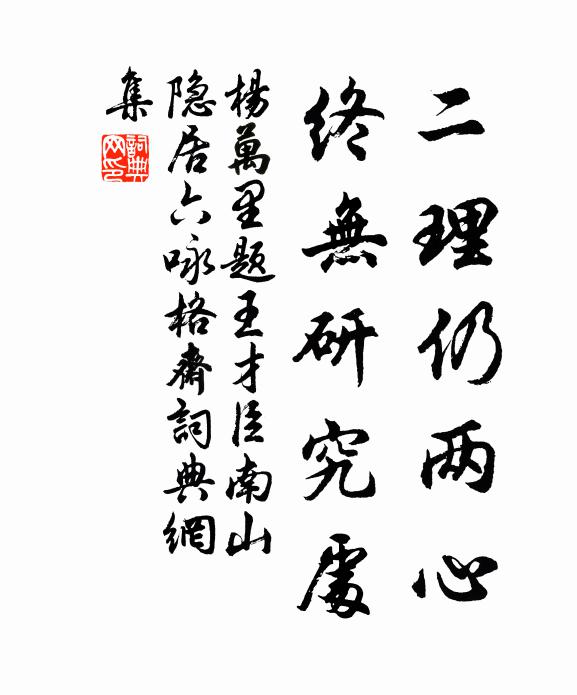 二理仍两心
終無研究處
楊萬里題王才臣南山
隐居六咏格齋詞典網
集
詞典網印